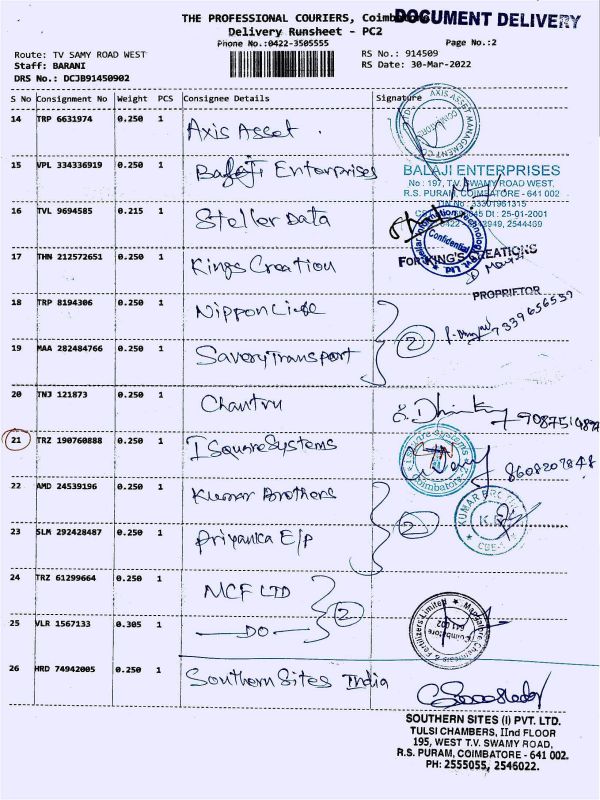 THE PROFESSIONAL COURIERS, Coimbatore
DOCUMENT DELIVERY
Delivery Runsheet - PC2
Phone No.:0422-3505555
Page No.:2
Route: TV SAMY ROAD WEST
RS No.: 914509
Staff: BARANI
RS Date: 30-Mar-2022
DRS No.: DCJB91450902
S No Consignment No Weight PCS Consignee Details Signature
14 TRP 6631974 0.250 1 Axis Asset
AXIS ASSET MANAGEMENT CO. LTD. COIMBATORE
15 VPL 334336919 0.250 1 Balaji Enterprises
BALAJI ENTERPRISES
No : 197, T.V. SWAMY ROAD WEST,
R.S. PURAM, COIMBATORE - 641 002
16 TVL 9694585 0.215 1 Steller Data
Dt : 25-01-2001
Confidential
17 THN 212572651 0.250 1 Kings Creation
FOR KING'S CREATIONS
PROPRIETOR
18 TRP 8194306 0.250 1 Nippon Life
2
19 MAA 282484766 0.250 1 Savery Transport
20 TNJ 121873 0.250 1 Chantru
21 TRZ 190760888 0.250 1 I Square Systems
I Square Systems Coimbatore
8608207848
22 AMD 24539196 0.250 1 Kumar Brothers
2
KUMAR BROTHERS
K.B
CBE-
23 SLM 292428487 0.250 1 Priyanka E/P
24 TRZ 61299664 0.250 1 MCF LTD
2
Mangalore Chemicals & Fertilizers Limited
Coimbatore
641 002
25 VLR 1567133 0.305 1 —DO—
26 HRD 74942005 0.250 1 Southern Sites India
SOUTHERN SITES (I) PVT. LTD.
TULSI CHAMBERS, IInd FLOOR
195, WEST T.V. SWAMY ROAD,
R.S. PURAM, COIMBATORE - 641 002.
PH: 2555055, 2546022.